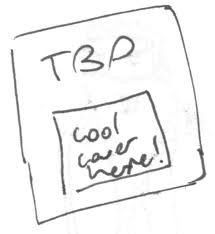 TBP
cool
cover
here!